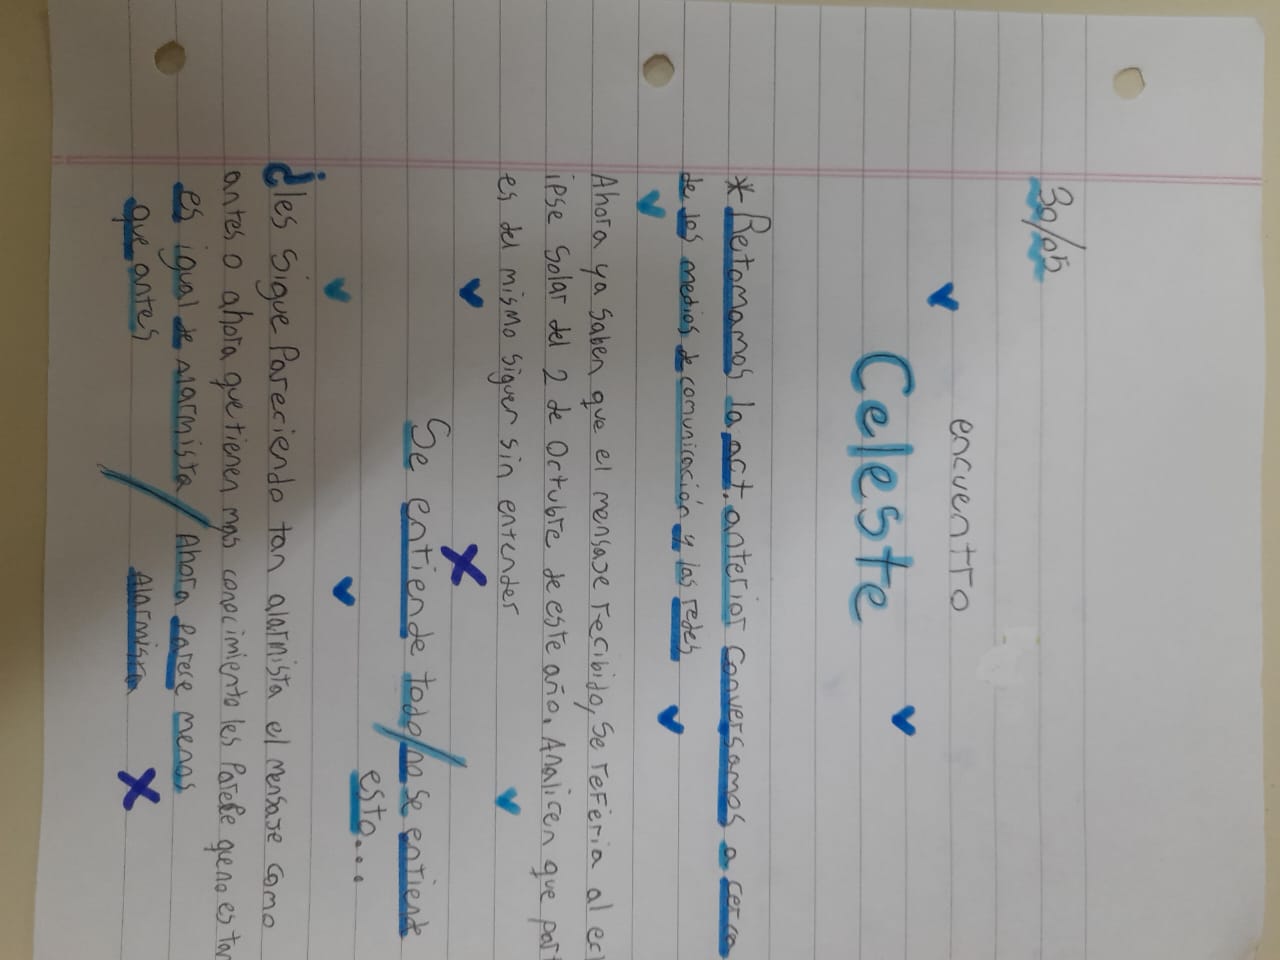 30/05
encuentro
Celeste
* Retomamos la act. anterior conversamos a cerca
de los medios de comunicación y las redes
Ahora ya saben que el mensaje recibido, se referia al ecl
ipse Solar del 2 de Octubre de este año. Analicen que par
es del mismo siguen sin entender
Se entiende todo/no se entiende
esto...
¿les sigue Pareciendo tan alarmista el mensaje como
antes o ahora que tienen mas conocimiento les Parece que no es tan
es igual de Alarmista / Ahora Parece menos
que antes Alarmista